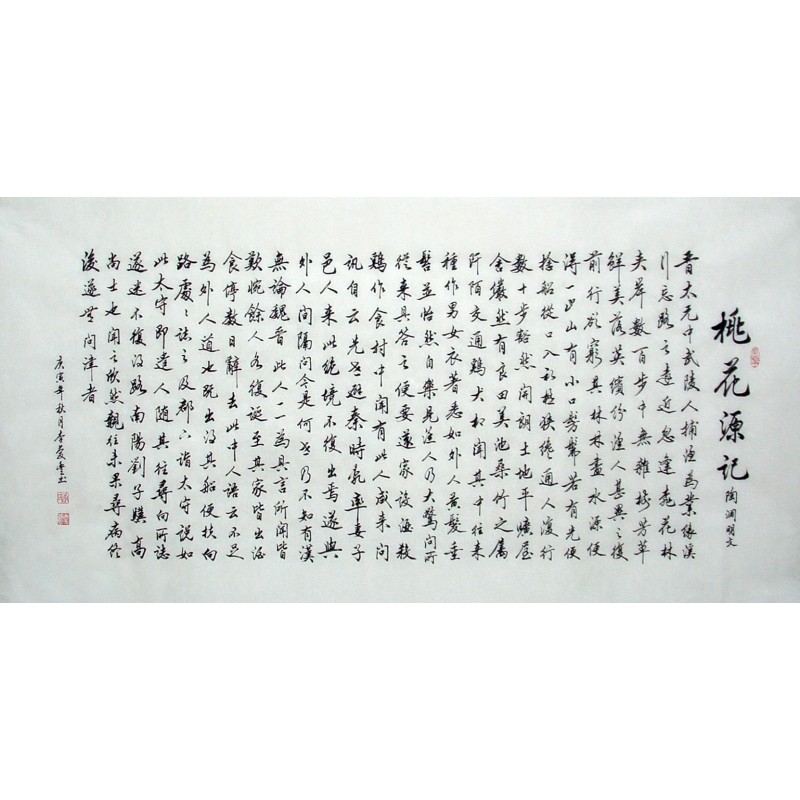 桃花源记
陶渊明文
晋太元中武陵人捕渔为業缘溪
行忘路之遠近忽逢桃花林
夹岸數百步中無雜樹芳草
鲜美落英缤纷渔人甚異之復
前行欲窮其林林盡水源便
得一山山有小口髣髴若有光便
捨船從口入初極狭缘通人復行
數十步豁然開朗土地平曠屋
舍儼然有良田美池桑竹之属
阡陌交通鷄犬相闻其中往来
種作男女衣著悉如外人黄髮垂
髫並怡然自樂見渔人乃大驚问所
從来具答之便要還家设酒殺
鷄作食村中闻有此人咸来问
讯自云先世避秦時亂率妻子
邑人来此绝境不復出焉遂與
外人间隔问今是何世乃不知有漢
無論魏晋此人一一為具言所闻皆
歎惋餘人各復延至其家皆出酒
食停數日辭去此中人语云不足
為外人道也既出得其船便扶向
路處處誌之及郡下诣太守说如
此太守即遣人随其往尋向所誌
遂迷不復得路南陽劉子驥高
尚士也闻之欣然親往未果尋病终
後遂無问津者
庚寅年秋月